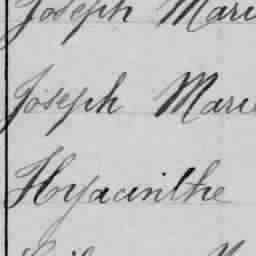 Joseph Mari
Joseph Mari
Hyacinthe